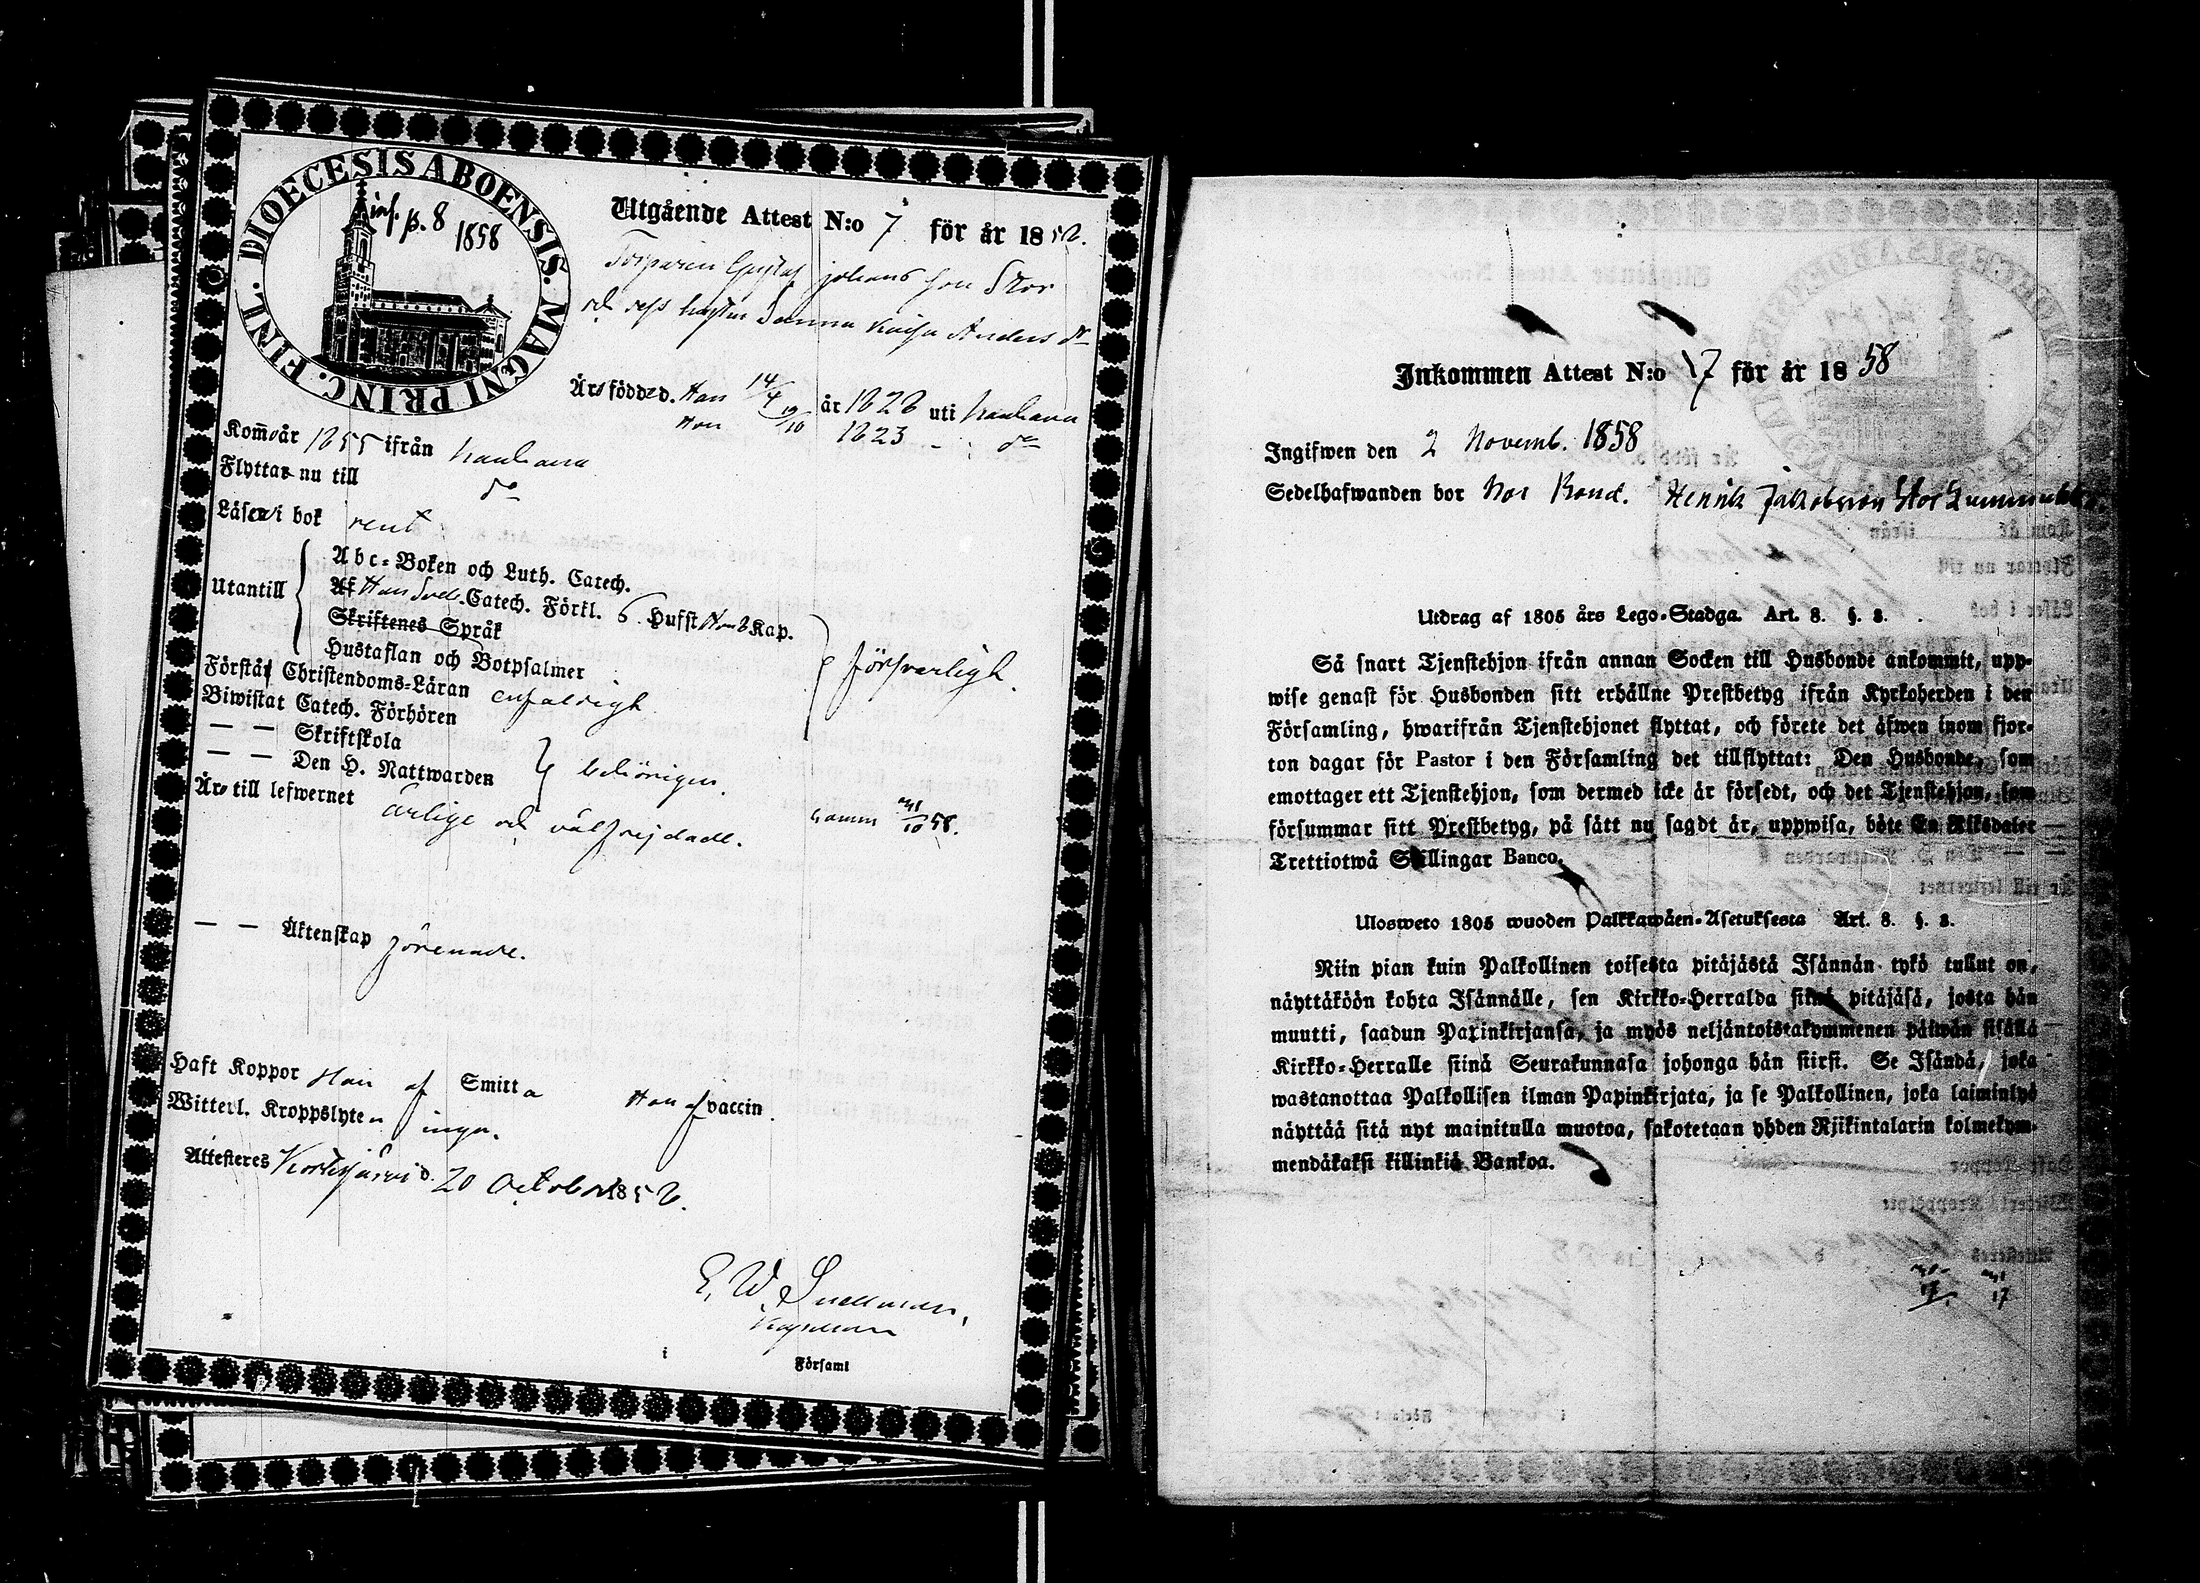 DIOECESIS ABOENSIS. MAGNI PRINC. FINL.
inf. p. 8 1858
Utgående Attest N:o 7 för år 1858.
Torparen Gustaf Johansson Stor
och dess hustru Sanna Kaisa Anders dr
Äro födde d. Han 14/4 år 1828 uti Kauhava
Hon 19/10 1823 - do
Kommo år 1855 ifrån Kauhava
Flytta nu till do
Läsa i bok rent
Utantill
Abc-Boken och Luth. Catech.
Af Han Sved. Catech. Förkl. 6. Hufst Hon 6 Kap.
Skriftenes Språk
Hustaflan och Botpsalmer
försvarligt.
Förstå Christendoms-Läran enfaldigt
Biwistat Catech. Förhören
— — Skriftskola
— — Den H. Nattwarden
behörigen.
Äro till lefwernet ärlige och välfrejdade.
10 58.
— — Äktenskap förenade.
Haft Koppor Hon af Smitta Han af vaccin.
Witterl. Kroppslyten inga.
Attesteres Kortesjärvi d. 20 October 1858.
E. W. Snellman,
Kapellan
i Församl
Inkommen Attest N:o 17 för år 1858
Ingifwen den 2 Novemb. 1858
Sedelhafwanden bor hos Bond. Henrik Jakobsson
Utdrag af 1805 års Lego-Stadga. Art. 8. §. 3.
Så snart Tjenstehjon ifrån annan Socken till Husbonde ankommit, upp-
wise genast för Husbonden sitt erhållne Prestbetyg ifrån Kyrkoherden i den
Församling, hwarifrån Tjenstehjonet flyttat, och förete det äfwen inom fjor-
ton dagar för Pastor i den Församling det tillflyttat: Den Husbonde, som
emottager ett Tjenstehjon, som dermed icke är försedt, och det Tjenstehjon, som
försummar sitt Prestbetyg, på sätt nu sagdt är, uppwisa, böte En Riksdaler
Trettiotwå Skillingar Banco.
Ulosweto 1805 wuoden Palkkawäen-Asetuksesta Art. 8. §. 3.
Niin pian kuin Palkollinen toisesta pitäjästä Isännän tykö tullut on,
näyttäköön kohta Isännälle, sen Kirkko-Herralda siinä pitäjäsä, josta hän
muutti, saadun Papinkirjansa, ja myös neljäntoistakymmenen päiwän sisällä
Kirkko-Herralle siinä Seurakunnasa johonga hän siirsi. Se Isändä, joka
wastanottaa Palkollisen ilman Papinkirjata, ja se Palkollinen, joka laiminlyö
näyttää sitä nyt mainitulla muotoa, sakotetaan yhden Rjikintalarin kolmekym-
mendäkaksi killinkiä Bankoa.